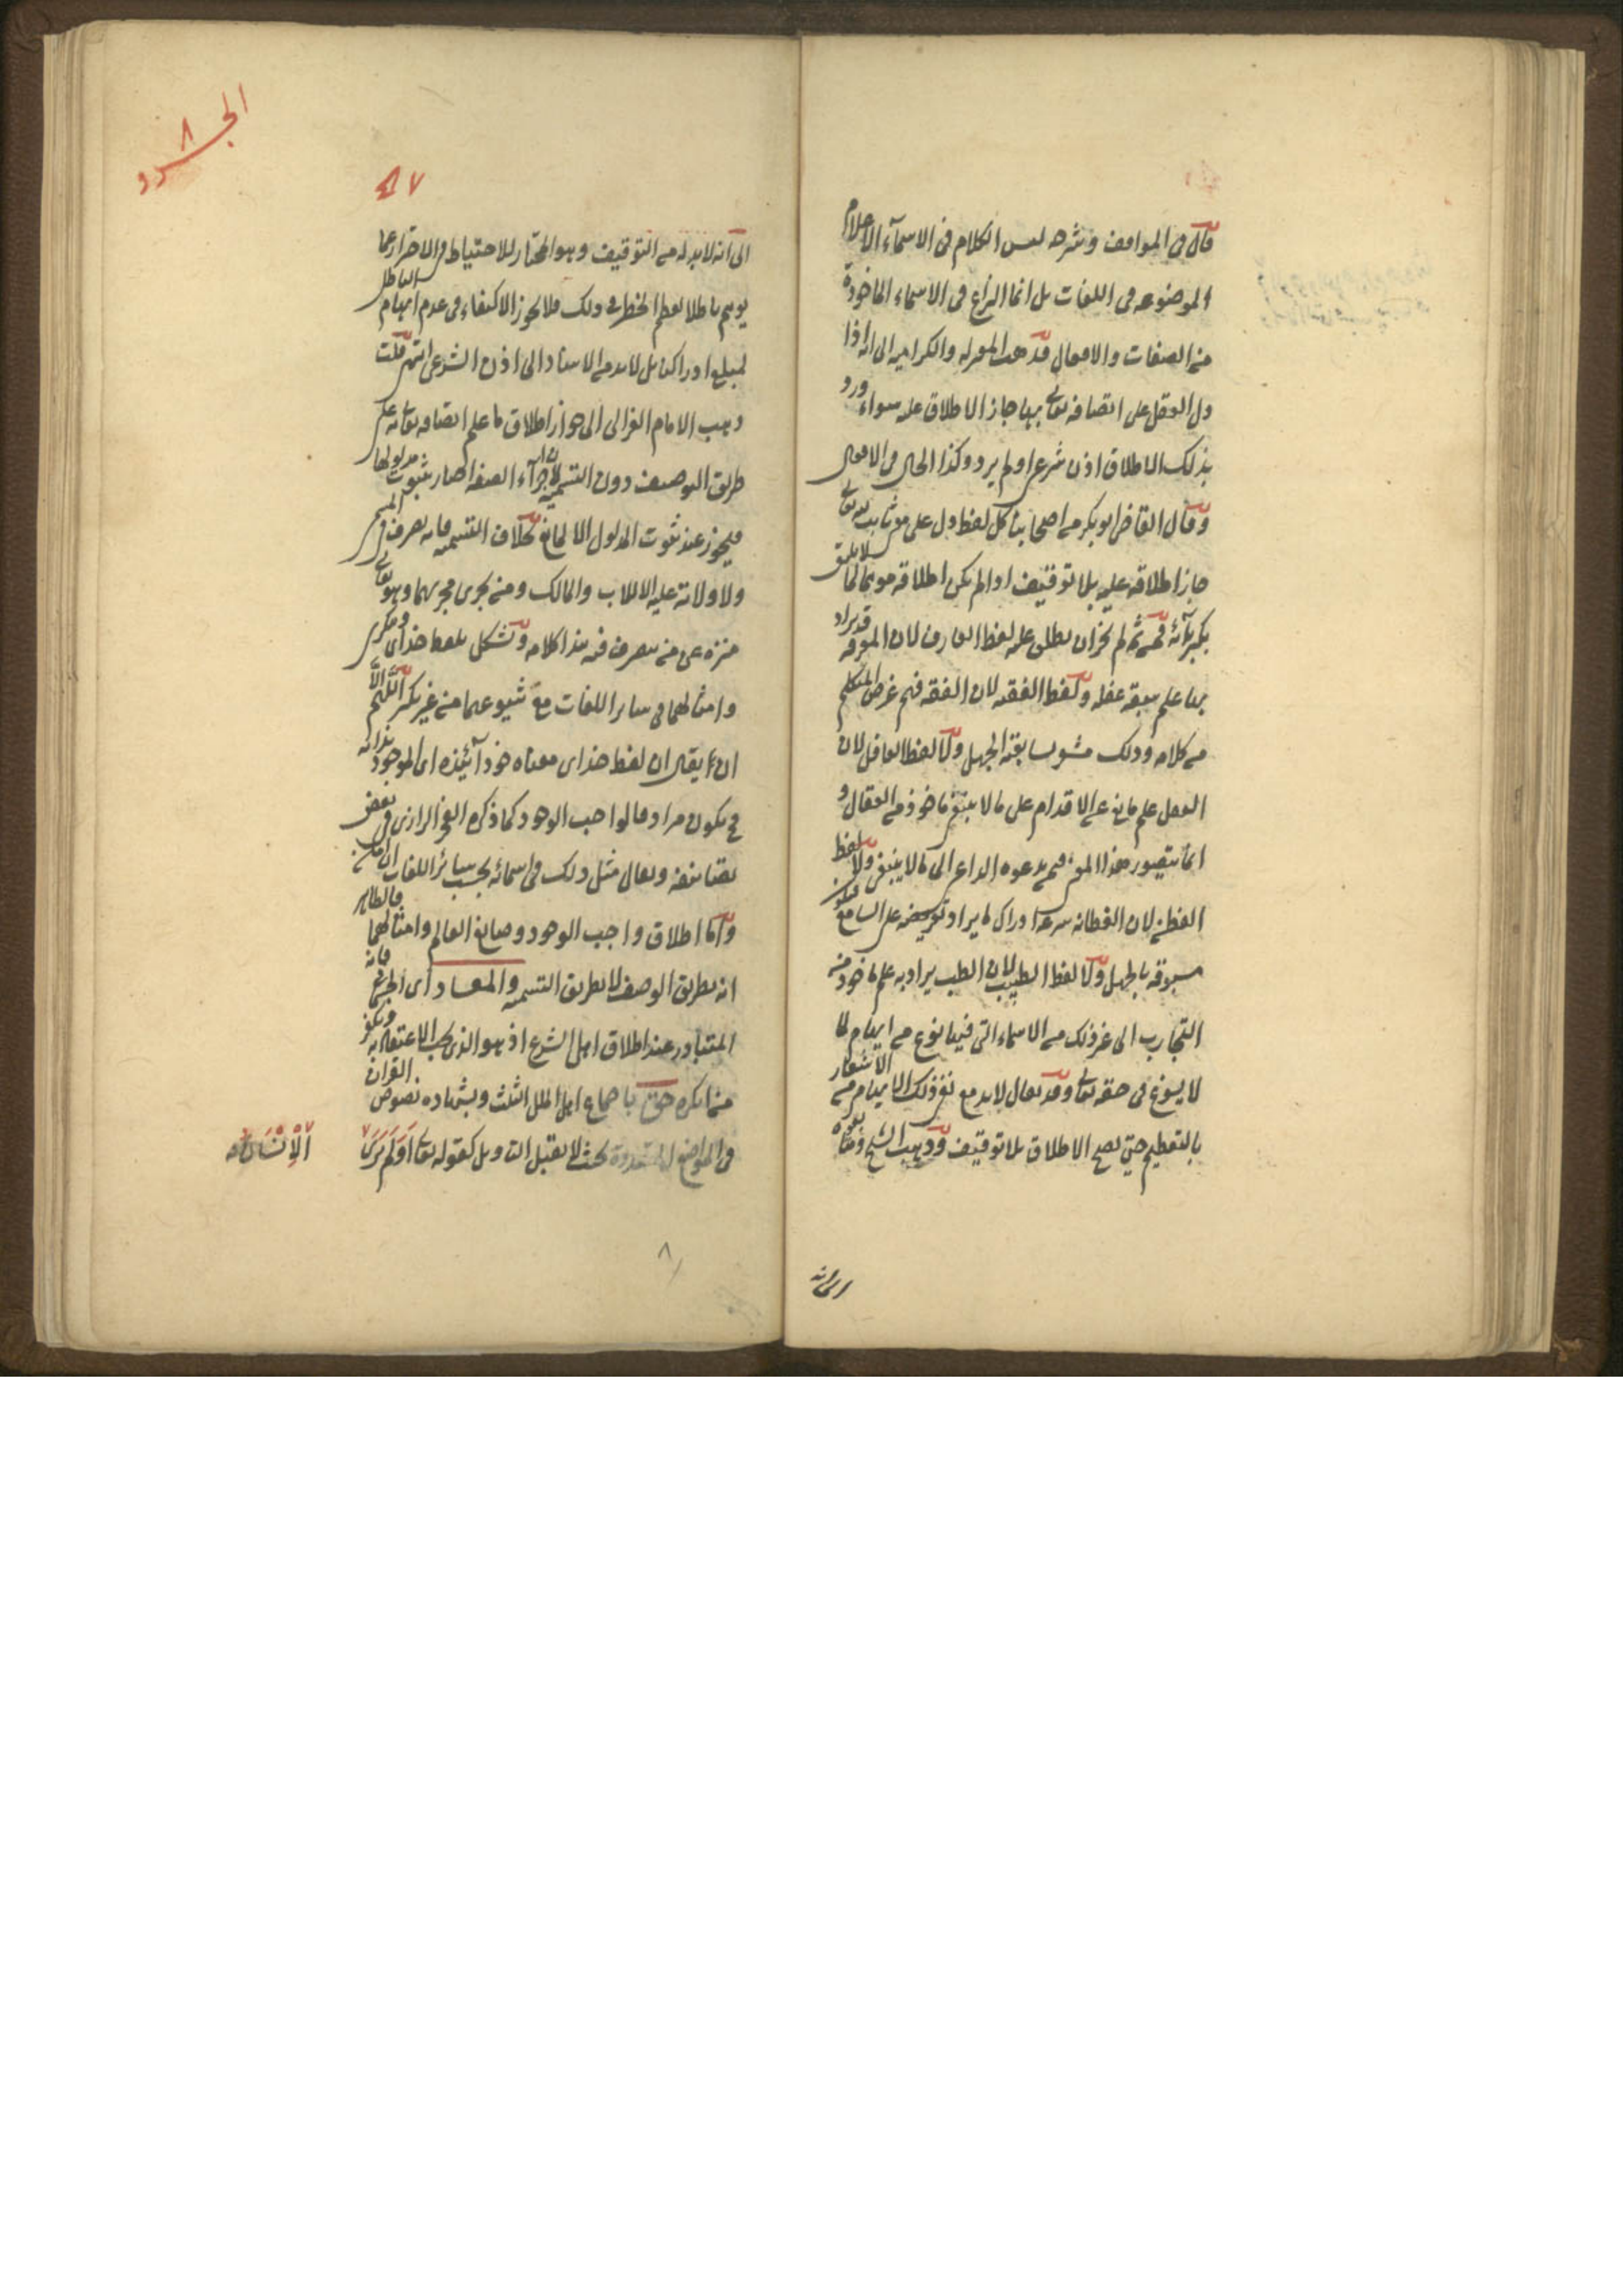 قال فى المواقف وشرحه ليس الكلام فى الاسمآء الاعلام
الموضوعه فى اللغات بل انما النزاع فى الاسماء الماخوذة
من الصفات والافعال فذهب المعتزله والكراميه الى انه اذا
دل العقل على اتصافه تعالى بها جاز الاطلاق عليه سواء ورد
بذلك الاطلاق اذن شرعى او لم يرد وكذا الحال فى الافعال
وقال القاضى ابو بكر من اصحابنا كل لفظ دل على معنى ثابت لله تعالى
جاز اطلاقه عليه بلا توقيف اذا لم يكن اطلاقه موهما لما لا يليق
بكبريائه فمن ثم لم يجز ان يطلق عليه لفظ العارف لان المعرفة قد يراد
بها علم يسبقه غفله ولا لفظ الفقيه لان الفقه فهم غرض المتكلم
من كلامه وذلك مشعر بسابقة الجهل ولا لفظ العاقل لان
العقل علم مانع عن الاقدام على ما لا ينبغى ماخوذ من العقال و
انما يتصور هذا المعنى فيمن يدعوه الداعى الى ما لا ينبغى ولا لفظ
الفطن لان الفطانه سرعة ادراك ما يراد تعريضه على السامع فتكون
مسبوقه بالجهل ولا لفظ الطبيب لان الطب يراد به علم ماخوذ من
التجارب الى غير ذلك من الاسماء التى فيها نوع من ايهام لما
لا يسوغ فى حقه تعالى وقد يقال لا بد مع نفى ذلك الايهام من الاشعار
بالتعظيم حتى يصح الاطلاق بلا توقيف وذهب الشيخ ومتابعوه
الى انه
الجرد ٨
٤٧
الى انه لا بد له من التوقيف وهو المختار للاحتياط فى الاحتراز عما
يوهم باطلا لعظم الخطر فى ذلك فلا يجوز الاكتفاء فى عدم ايهام الباطل
بمبلغ ادراكنا بل لا بد من الاستناد الى اذن الشرع انتهى قلت
وذهب الامام الغزالى الى جواز اطلاق ما علم اتصافه تعالى به على
طريق التوصيف دون التسمية لان اجرآء الصفة اخبار بثبوت مدلولها
فيجوز عند ثبوت المدلول الا لمانع بخلاف التسميه فانه تصرف فى المسمى
ولا ولاية عليه الا للاب والمالك ومن يجرى مجريهما وهو تعالى
منزه عن من يتصرف فيه هذا كلامه ويشكل بلفظ خداى وتكرى
وامثالهما فى سائر اللغات مع شيوعها من غير نكير اللّهم الّا
ان يقال ان لفظ خداى معناه خود آينده اى الموجود بذاته
فح يكون مرادفا لواجب الوجود كما ذكره الفخر الرازى فى بعض
تصانيفه ويقال مثل ذلك فى اسمائه بحسب سائر اللغات ان امكن
وامّا اطلاق واجب الوجود وصانع العالم وامثالهما فالظاهر
انه بطريق الوصف لا بطريق التسمية والمعاد اى الجسمانى فانه
المتبادر عند اطلاق اهل الشرع اذ هو الذى يجب الاعتقاد به ويكفر
من انكره حق باجماع اهل الملل الثلث وبشهادة نصوص القران
فى المواضع المتعددة بحيث لا يقبل التاويل كقوله تعالى اَوَلَمْ يَرَ
اَلْاِنْسَانُ
٨